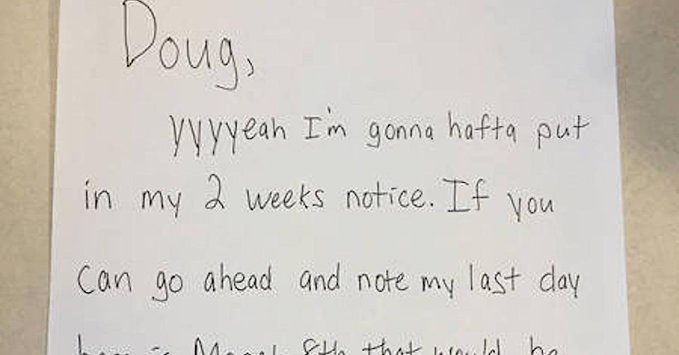 Doug,
yyyyeah I'm gonna hafta put
in my 2 weeks notice. If you
can go ahead and note my last day
8th that would be